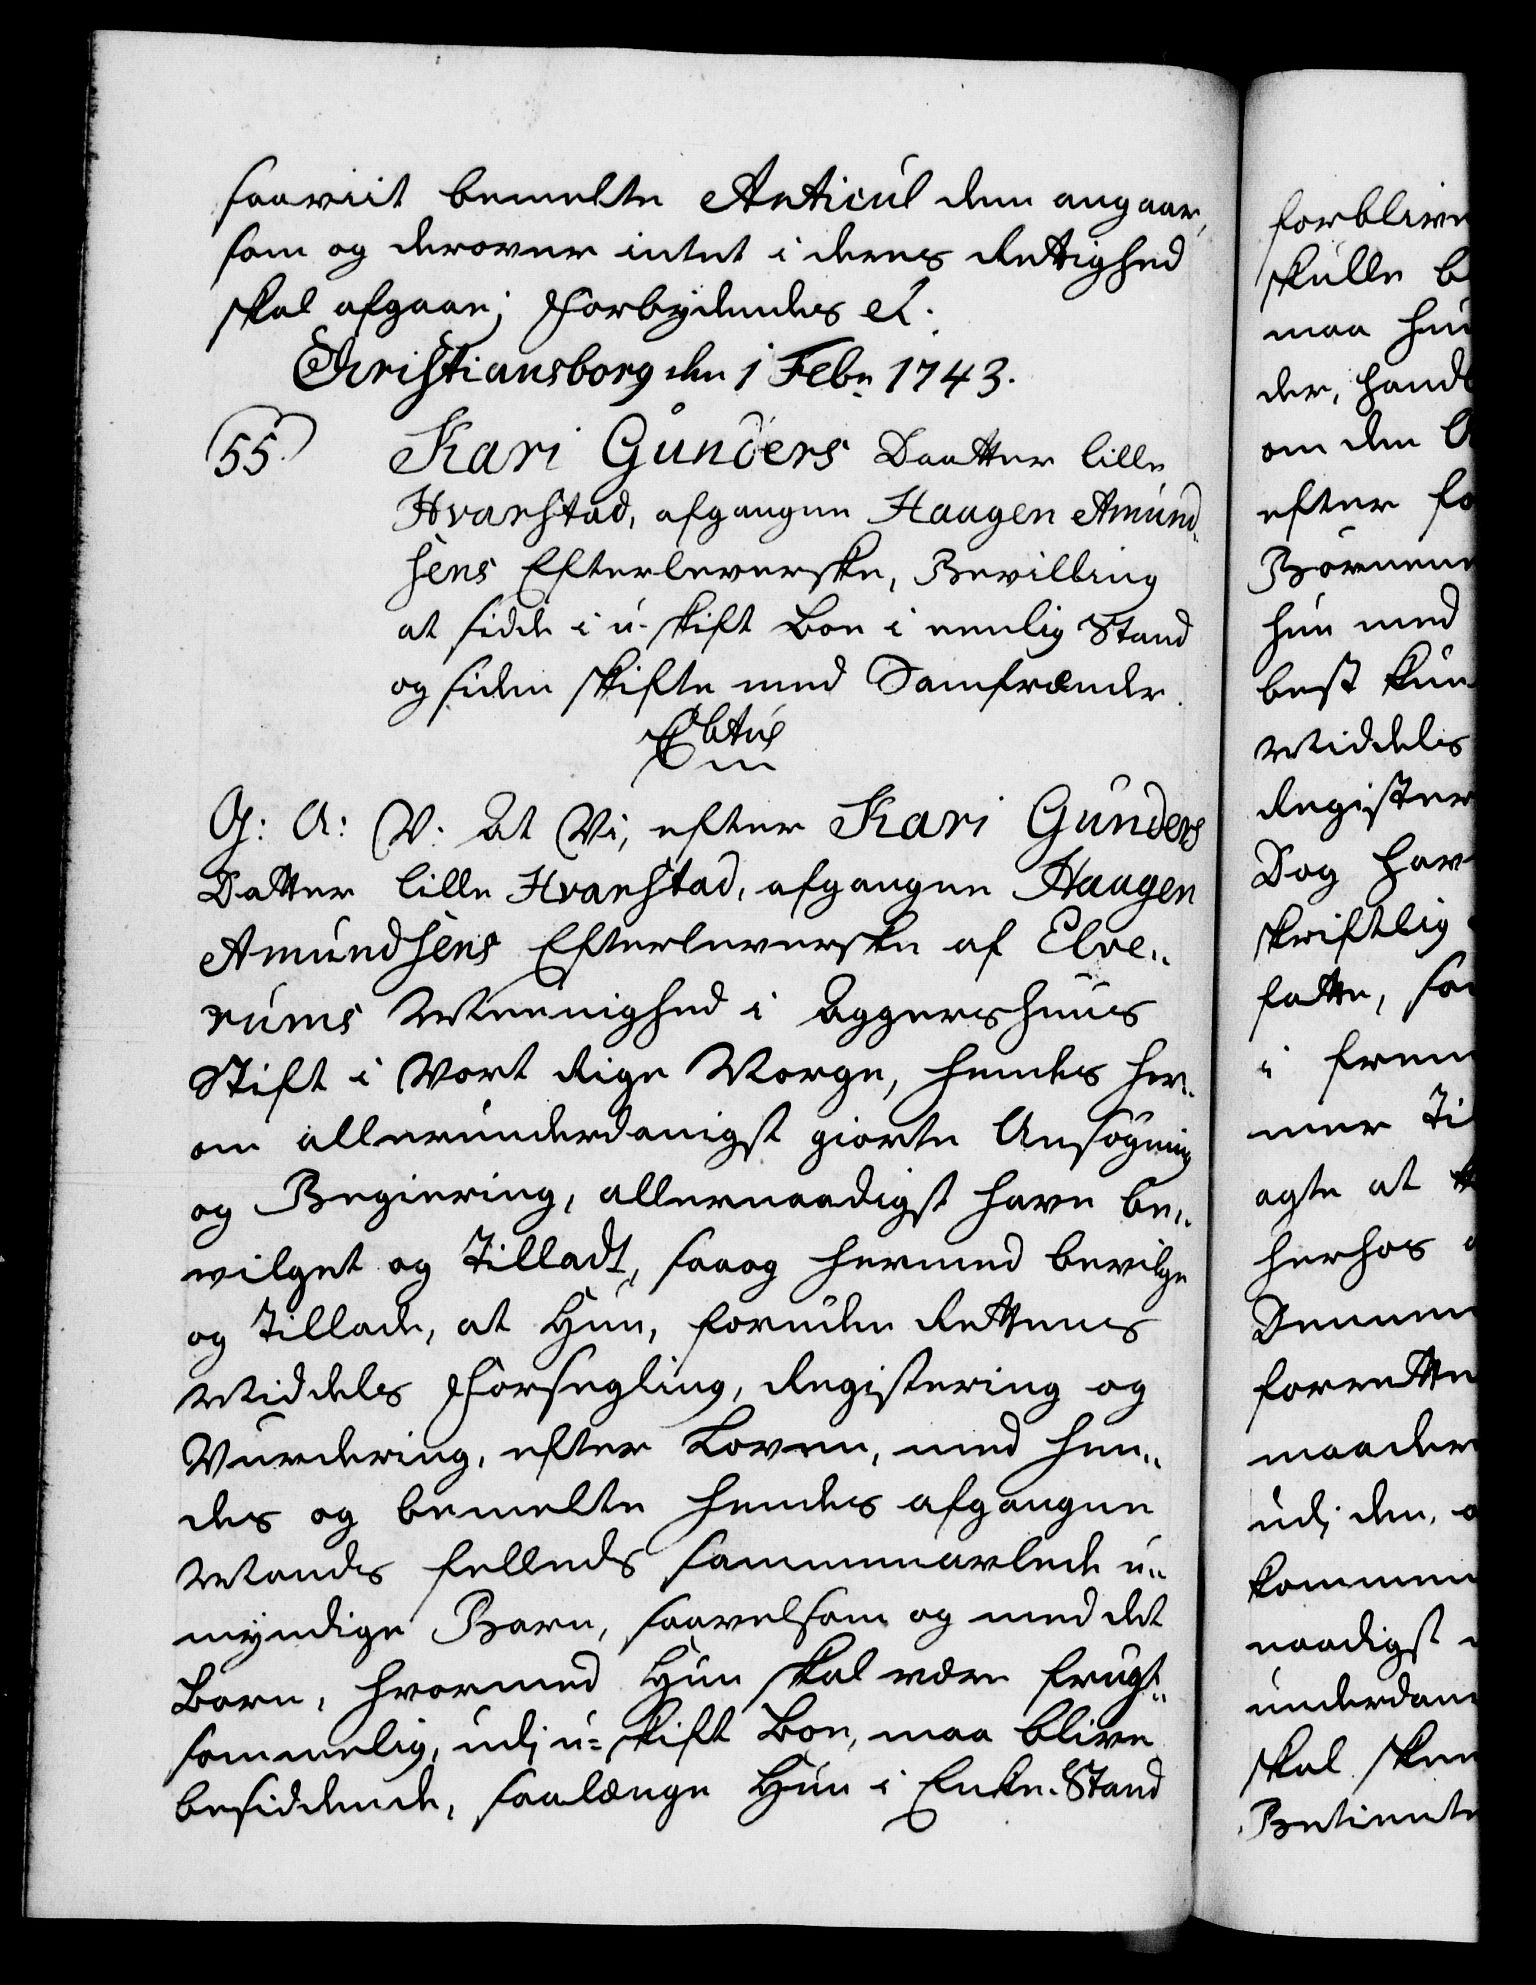 saaviit bemelte Articul dem angaar,
som og derover intet i deres Rettighed
skal afgaae; Forbydendes &.
Christiansborg den 1 Febr 1743.
55. Kari Gunders Daatter lille
Hvarstad, afgangne Haagen Amund-
sens Efterleverske, Bevilling
at sidde i u-skift Boe i eenlig Stand
og siden skifte med Samfrænder.
G: A: V. At Vi, efter Kari Gunders
Datter lille Hvarstad, afgangne Haagen
Amundsens Efterleverske af Elve-
rums Meenighed i Aggershuus
Stift i Vort Rige Norge, hendes her-
om allerunderdanigst giorte Ansøgning
og Begiering, allernaadigst have be-
vilget og Tilladt, saaog hermed bevilge
og Tillade, at Hun, foruden Rettens
Middels Forsegling, Registering og
Vurdering, efter Loven, med hen-
des og bemelte hendes afgangne
Mands felleds sammenavlede u-
myndige Barn, saavelsom og med det
Barn, hvormed Hun skal være frugt-
sommelig, udj u-skift Boe, maa blive
besiddende, saalænge Hun i Enke-Stand
forblive
skulle b
maa hu
der, hand
om den
efter fo
Børnene
hun med
best kun
Middels
Register
Dog hav
skriftlig
fatte, so
i frem
mer Ti
agte at
herhos
Dennem
forrette
maader
udj den,
kommen
naadigst
underdan
skal skee
Betiente